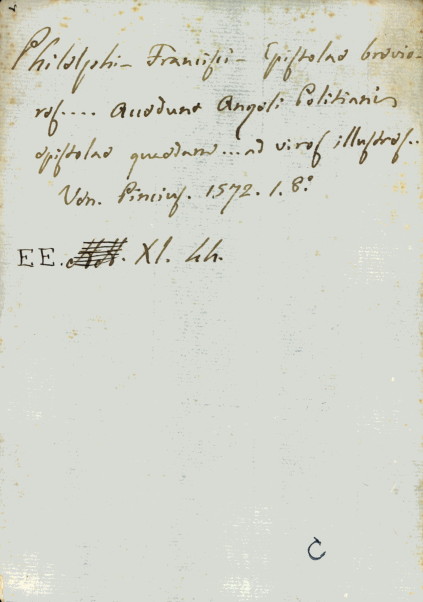 Philelphi - Francisci - Epistolae brevio-
res.... Accedunt Angeli Politianis
epistolae quaedam... ad viros illustres..
Ven. Pincius. 1572. 1. 8.º
EE. XI. 44.
C